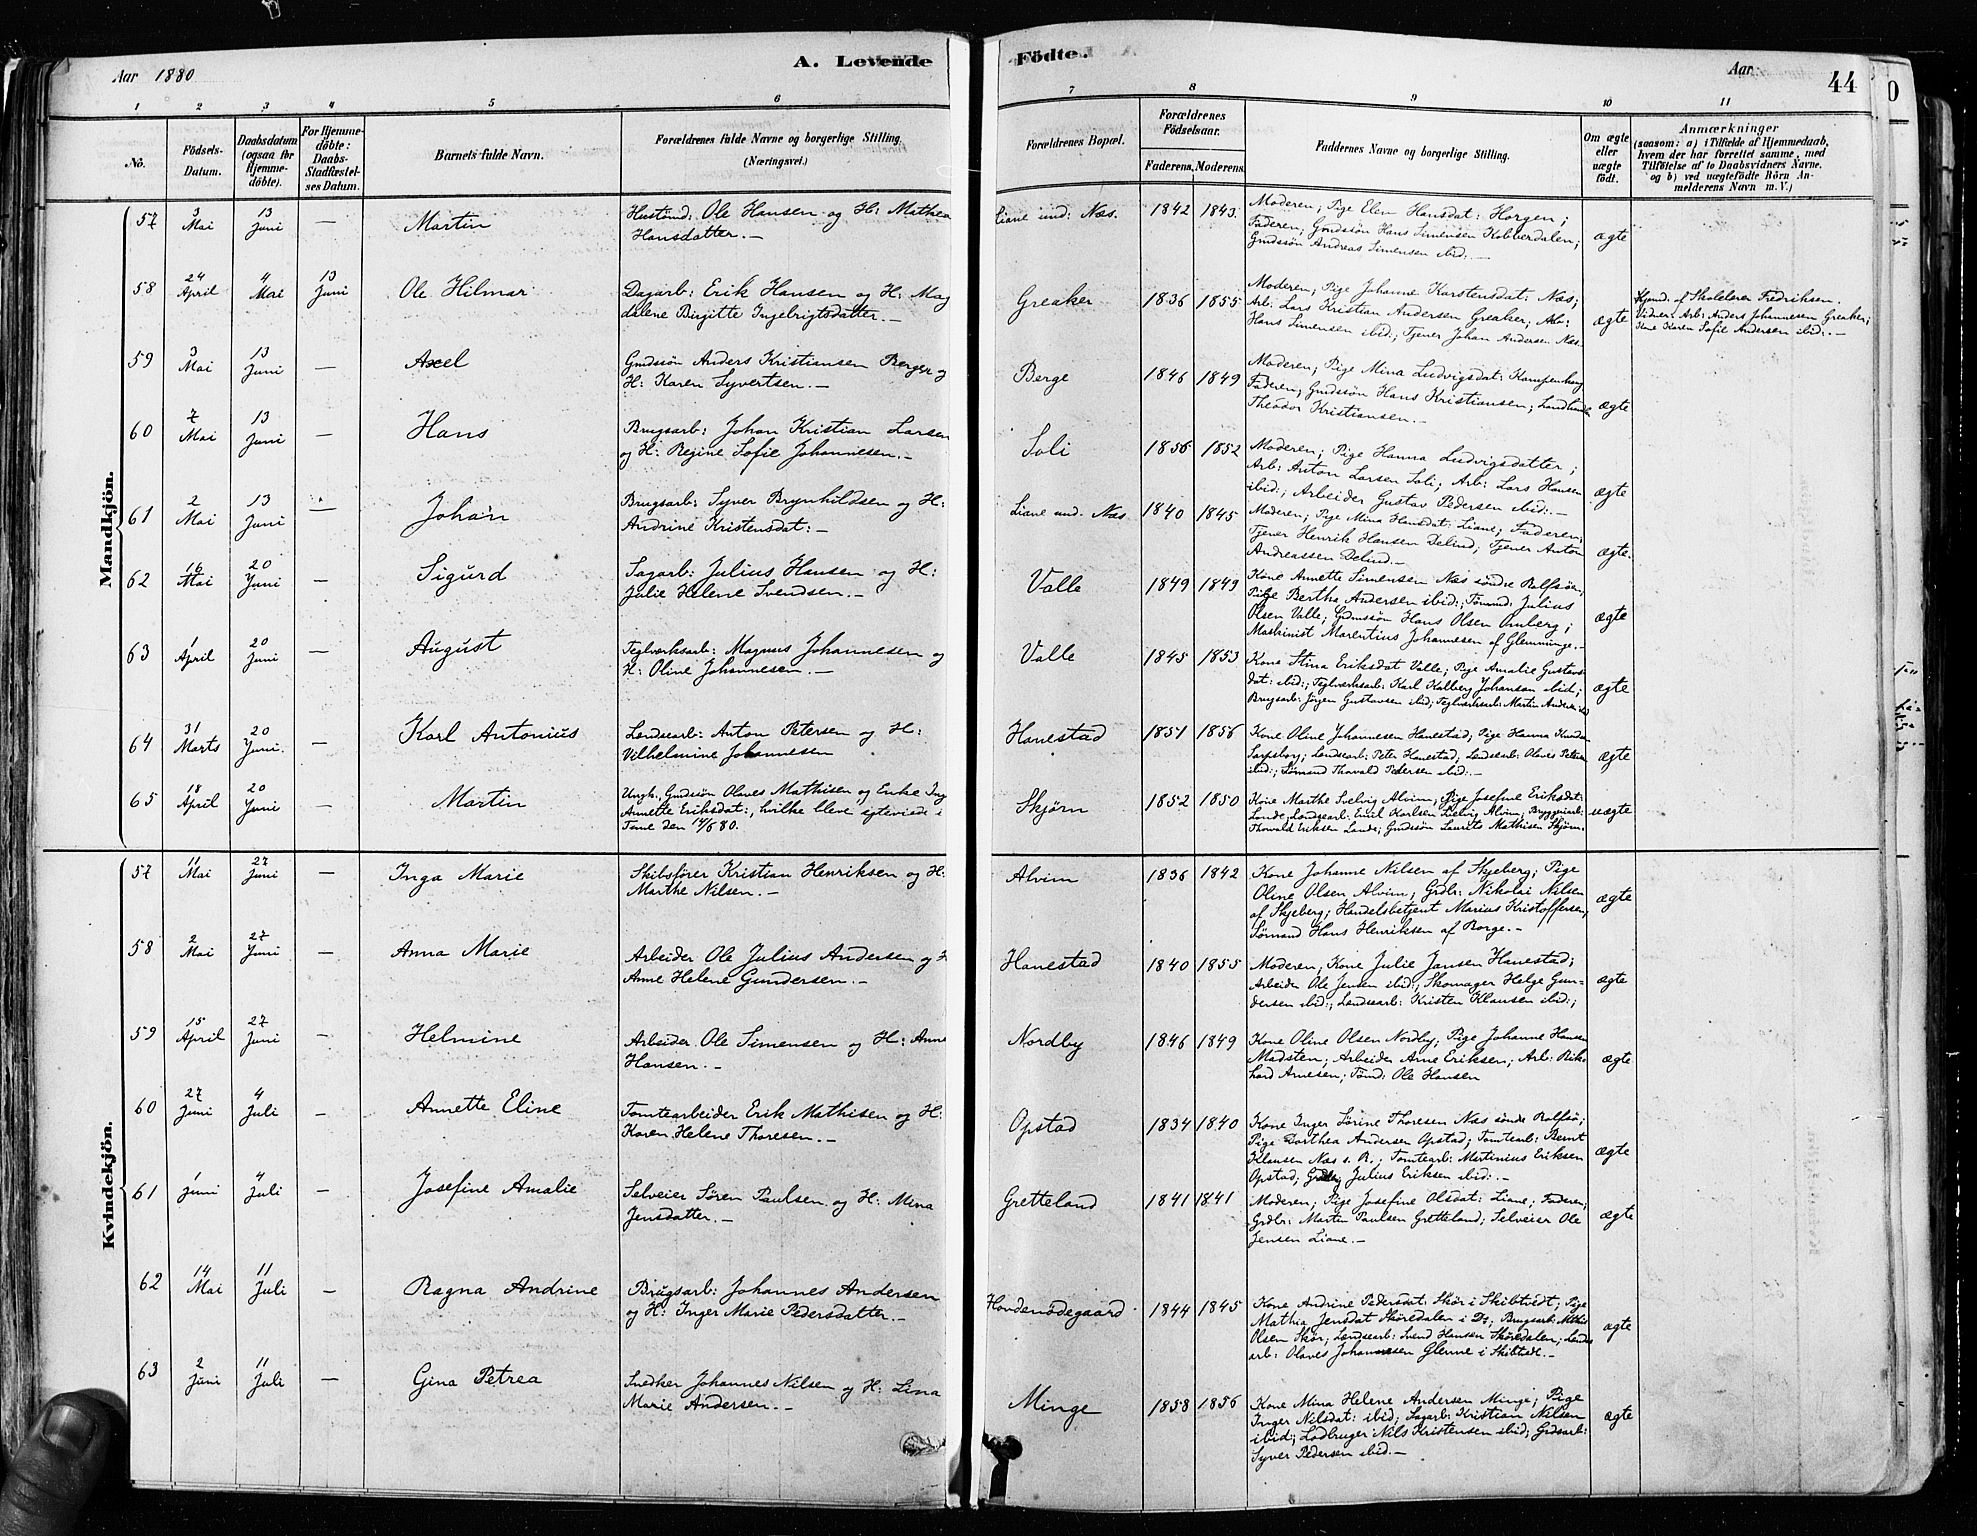 Aar 1880
A. Levende Födte.
Aar
44
1 2 3 4 5 6 7 8 9 10 11
No.
Födsels-Datum.
Daabsdatum (ogsaa for Hjemme-döbte).
For Hjemme-döbte: Daabs-Stadfæstel-ses Datum.
Barnets fulde Navn.
Forældrenes fulde Navne og borgerlige Stilling.
(Næringsvei.)
Forældrenes Bopæl.
Forældrenes Födselsaar.
Faderens. Moderens.
Faddernes Navne og borgerlige Stilling.
Om ægte eller uægte födt.
Anmærkninger
(saasom: a) i Tilfælde af Hjemmedaab,
hvem der har forrettet samme, med
Tilföielse af to Daabsvidners Navne,
og b) ved uægtefödte Börn An-
melderens Navn m. V.)
Mandkjön.
57 3 Mai 13 Juni — Martin
Husmd: Ole Hansen og H: Mathea
Hansdatter. —
Liane und: Næs. 1842 1843.
Moderen; Pige Elen Hansdat: Horgen;
Faderen; Gmdssön Hans Simensen Kobberdalen;
Gmdssön Andreas Simensen ibid: —
ægte
58 24 April 4 Mai 13 Juni Ole Hilmar
Dagarb: Erik Hansen og H: Mag
dalene Birgitte Ingebrigtsdatter. —
Greaker 1836 1855
Moderen; Pige Johanne Karstensdat: Næs;
Arb: Lars Kristian Andersen Greaker; Arb:
Hans Simensen ibid:; Tjener Johan Andersen Næs.
ægte
Hjmd. af Skolelærer Fredriksen.
Vidner: Arb: Anders Johannesen Greaker;
Kone Karen Sofie Andersen ibid: —
59 3 Mai 13 Juni — Axel
Gmdssön Anders Kristiansen Berge og
H: Karen Syvertsen. —
Berge 1846 1849
Moderen; Pige Mina Ludvigsdat: Kampenhaug
Faderen; Gmdssön Hans Kristiansen; Landhandler
Theodor Kristiansen. —
ægte
60 7 Mai 13 Juni — Hans
Brugsarb: Johan Kristian Larsen
og H: Regine Sofie Johannesen. —
Soli 1856 1852
Moderen; Pige Hanna Ludvigsdatter;
Arb: Anton Larsen Soli; Arb: Lars Hansen
ibid:; Arbeider Gustav Pedersen ibid: —
ægte
61 2 Mai 13 Juni — Johan
Brugsarb: Syver Brynhildsen og H:
Andrine Kristensdat: —
Liane und. Næs. 1840 1845
Moderen; Pige Mina Hansdat: Liane; Faderen;
Tjener Henrik Hansen Delind; Tjener Anton
Andreassen Delind. —
ægte.
62 16 Mai 20 Juni — Sigurd
Sagarb: Julius Hansen og H:
Julie Helene Svendsen. —
Valle 1849 1849
Kone Annette Simensen Næs söndre Rolfsöe;
Pige Bertha Andersen ibid:; Tömmd: Julius
Olsen Valle; Gdmssön Hans Olsen Omberg;
Maskinist Marentius Johannesen af Glemminge. —
ægte
63 1 April 20 Juni — August
Teglværksarb: Magnus Johannesen og
H: Oline Johannesen. —
Valle 1845 1853
Kone Stina Eriksdat Valle; Pige Amalie Gustavs-
dat: ibid:; Teglværksarb: Karl Kalberg Johansen ibid;
Brugsarb: Jörgen Gustavsen ibid; Teglværksarb: Martin Andersen ibid
ægte
64 31 Marts 20 Juni. — Karl Antonius
Lendsearb: Anton Petersen og H:
Vilhelmine Johannesen
Hanestad 1851 1856
Kone Oline Johannesen Hanestad; Pige Hanna Knudsen
Sarpsborg; Lendsearb: Peter Hanestad; Lendsearb: Olaves Petersen
ibid:; Sömand Thorvald Pedersen ibid: —
ægte
65 18 April 20 Juni — Martin
Ungk: Gmdssön Olaves Mathisen og Enke Ing
Annette Eriksdat:, hvilke bleve egteviede i
Tune den 14/5 80.
Skjörn 1852 1850
Kone Marthe Svelvig Alvim; Pige Josefine Eriksdat:
Lande; Lendsearb: Emil Karlsen Svelvig Alvim; Bryggeriarb:
Thorvald Eriksen Lande; Gmdssön Laurits Mathisen Skjörn.
uægte
Kvindekjön.
57 11 Mai 27 Juni — Inga Marie
Skibsförer Kristian Henriksen og H:
Marthe Nilsen. —
Alvim 1836 1842
Kone Johanne Nilsen af Skjeberg; Pige
Oline Olsen Alvim; Grdbr: Nikolai Nilsen
af Skjeberg; Handelsbetjent Marius Kristoffersen;
Sömand Hans Henriksen af Borge. —
ægte
58 2 Mai 27 Juni — Anna Marie
Arbeider Ole Julius Andersen og H
Anne Helene Gundersen. —
Hanestad 1840 1855
Moderen; Kone Julie Jansen Hanestad;
Arbeider Ole Jensen ibid:; Skomager Helge Gun-
dersen ibid:; Lendsearb: Kristen Klausen ibid:;
ægte
59 15 April 27 Juni — Helmine
Arbeider Ole Simensen og H: Anne
Hansen. —
Nordby 1846 1849
Kone Oline Olsen Nordby; Pige Johanne Hansen
Madsten; Arbeider Arne Eriksen; Arb: Rik-
hard Arnesen; Tömd: Ole Hansen
ægte
60 27 Juni 4 Juli — Annette Eline
Tomtearbeider Erik Mathisen og H:
Karen Helene Thoresen. —
Opstad 1834 1840
Kone Inger Sörine Thoresen Næs söndre Rolfsö;
Pige Dorthea Andersen Opstad; Tomtearb: Bernt
Klausen Næs s. R.; Tomtearb: Martinius Eriksen
Opstad; Julius Eriksen ibid: —
ægte
61 1 Juni 4 Juli — Josefine Amalie
Selveier Sören Paulsen og H: Mina
Jensdatter. —
Gretteland 1841 1841
Moderen; Pige Josefine Olsdat: Liane; Faderen;
Grdbr: Martin Paulsen Gretteland; Selveier Ole
Jensen Liane. —
ægte
62 14 Mai 11 Juli — Ragna Andrine
Brugsarb: Johannes Andersen
og H: Inger Marie Pedersdatter. —
Hovdenödegaard. 1844 1845
Kone Andrine Pedersdat: Skör i Skibtvedt; Pige
Mathia Jensdat Sköreldalen i Do; Brugsarb: Mathis
Olsen Skör; Lendsearb: Svend Hansen Sköreldalen; Lendse
arb: Olaves Johannesen Glenne i Skibtvedt. —
ægte
63 2 Juni 11 Juli — Gina Petrea
Snedker Johannes Nilsen og H: Lina
Marie Andersen. —
Minge 1858 1856
Kone Mina Helene Andersen Minge; Pige
Inger Nilsdat: ibid; Sagarb: Kristian Nilsen
ibid; Lodbruger Nils Kristensen ibid; Grdsarb:
Syver Pedersen ibid. —
ægte